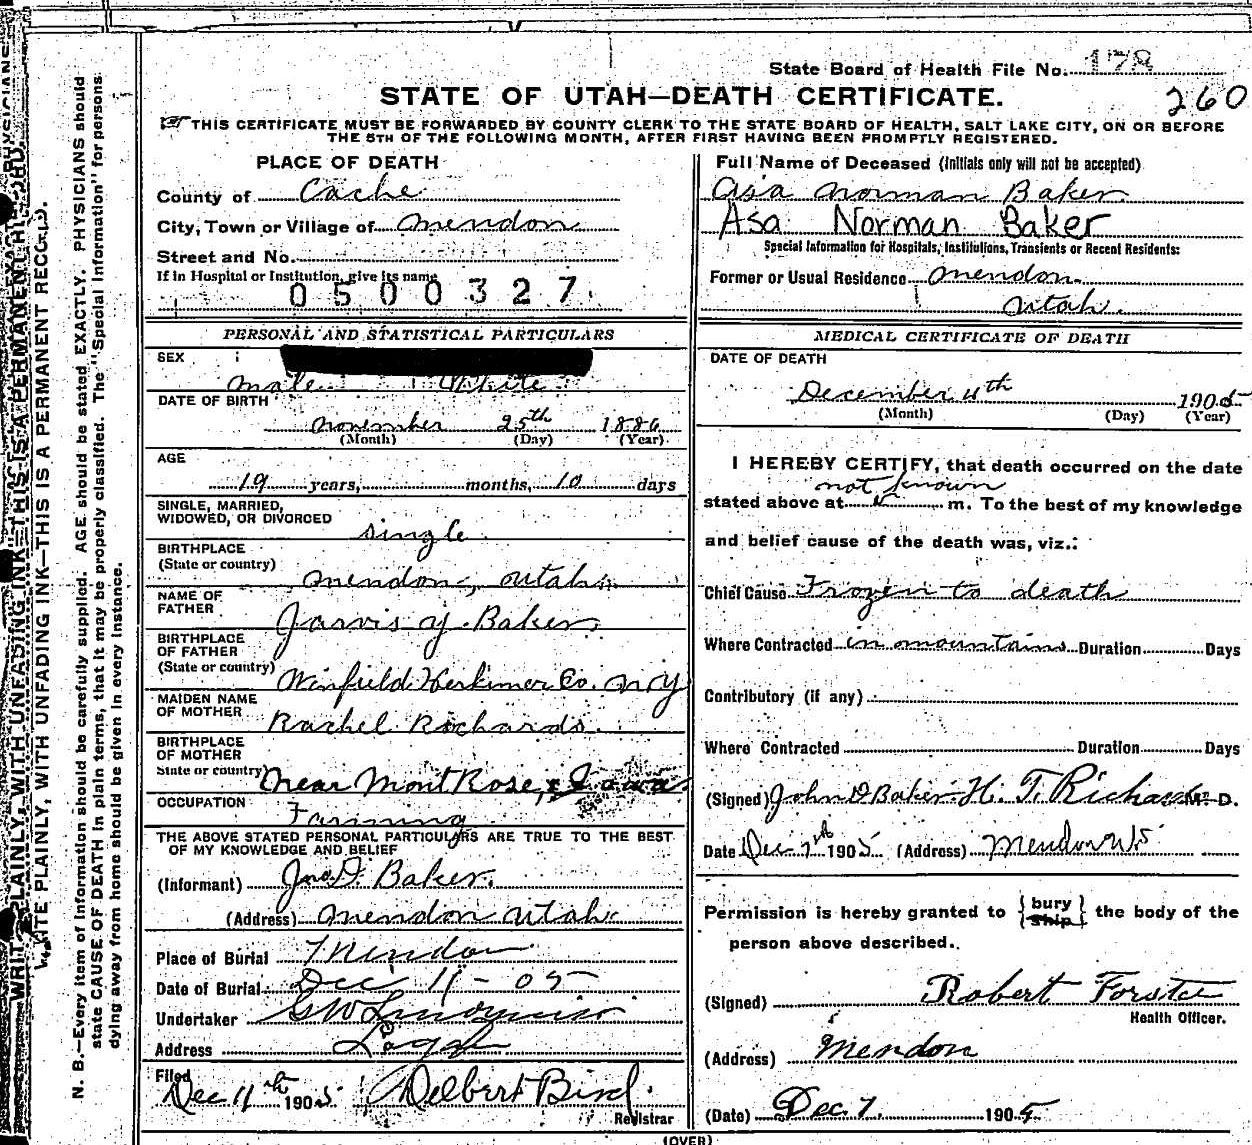 State Board of Health File No. 178
260
STATE OF UTAH—DEATH CERTIFICATE.
THIS CERTIFICATE MUST BE FORWARDED BY COUNTY CLERK TO THE STATE BOARD OF HEALTH, SALT LAKE CITY, ON OR BEFORE
THE 5TH OF THE FOLLOWING MONTH, AFTER FIRST HAVING BEEN PROMPTLY REGISTERED.
PLACE OF DEATH
County of Cache
City, Town or Village of Mendon
Street and No.
If in Hospital or Institution, give its name
0500327
PERSONAL AND STATISTICAL PARTICULARS
SEX
Male White
DATE OF BIRTH
November 25th 1886
(Month) (Day) (Year)
AGE
19 years, months, 10 days
SINGLE, MARRIED,
WIDOWED, OR DIVORCED
Single
BIRTHPLACE
(State or country)
Mendon, Utah
NAME OF
FATHER
Jarvis Y. Baker
BIRTHPLACE
OF FATHER
(State or country)
Winfield Herkimer Co. N.Y
MAIDEN NAME
OF MOTHER
Rachel Richards
BIRTHPLACE
OF MOTHER
State or country
Near MontRose, Iowa
OCCUPATION
Farming
THE ABOVE STATED PERSONAL PARTICULARS ARE TRUE TO THE BEST
OF MY KNOWLEDGE AND BELIEF
(Informant) Jno. D. Baker.
(Address) Mendon Utah
Place of Burial Mendon
Date of Burial Dec 11-05
Undertaker
Address Logan
Filed
Dec 11th 1905 Delbert Bird.
Registrar
Full Name of Deceased (Initials only will not be accepted)
Asa Norman Baker
Asa Norman Baker
Special Information for Hospitals, Institutions, Transients or Recent Residents:
Former or Usual Residence Mendon
Utah.
MEDICAL CERTIFICATE OF DEATH
DATE OF DEATH
December 4th 1905
(Month) (Day) (Year)
I HEREBY CERTIFY, that death occurred on the date
not known
stated above at m. To the best of my knowledge
and belief cause of the death was, viz.:
Chief Cause Frozen to death
Where Contracted in mountains Duration Days
Contributory (if any)
Where Contracted Duration Days
(Signed) John D Baker H. T. Richards M. D.
Date Dec 7th 1905 (Address) Mendon
Permission is hereby granted to {bury
ship} the body of the
person above described.
(Signed) Robert Forster
Health Officer.
(Address) Mendon
(Date) Dec 7. 1905
(OVER)
WRITE PLAINLY, WITH UNFADING INK—THIS IS A PERMANENT RECORD.
N. B.—Every item of information should be carefully supplied. AGE should be stated EXACTLY. PHYSICIANS should
state CAUSE OF DEATH in plain terms, that it may be properly classified. The "Special Information" for persons
dying away from home should be given in every instance.